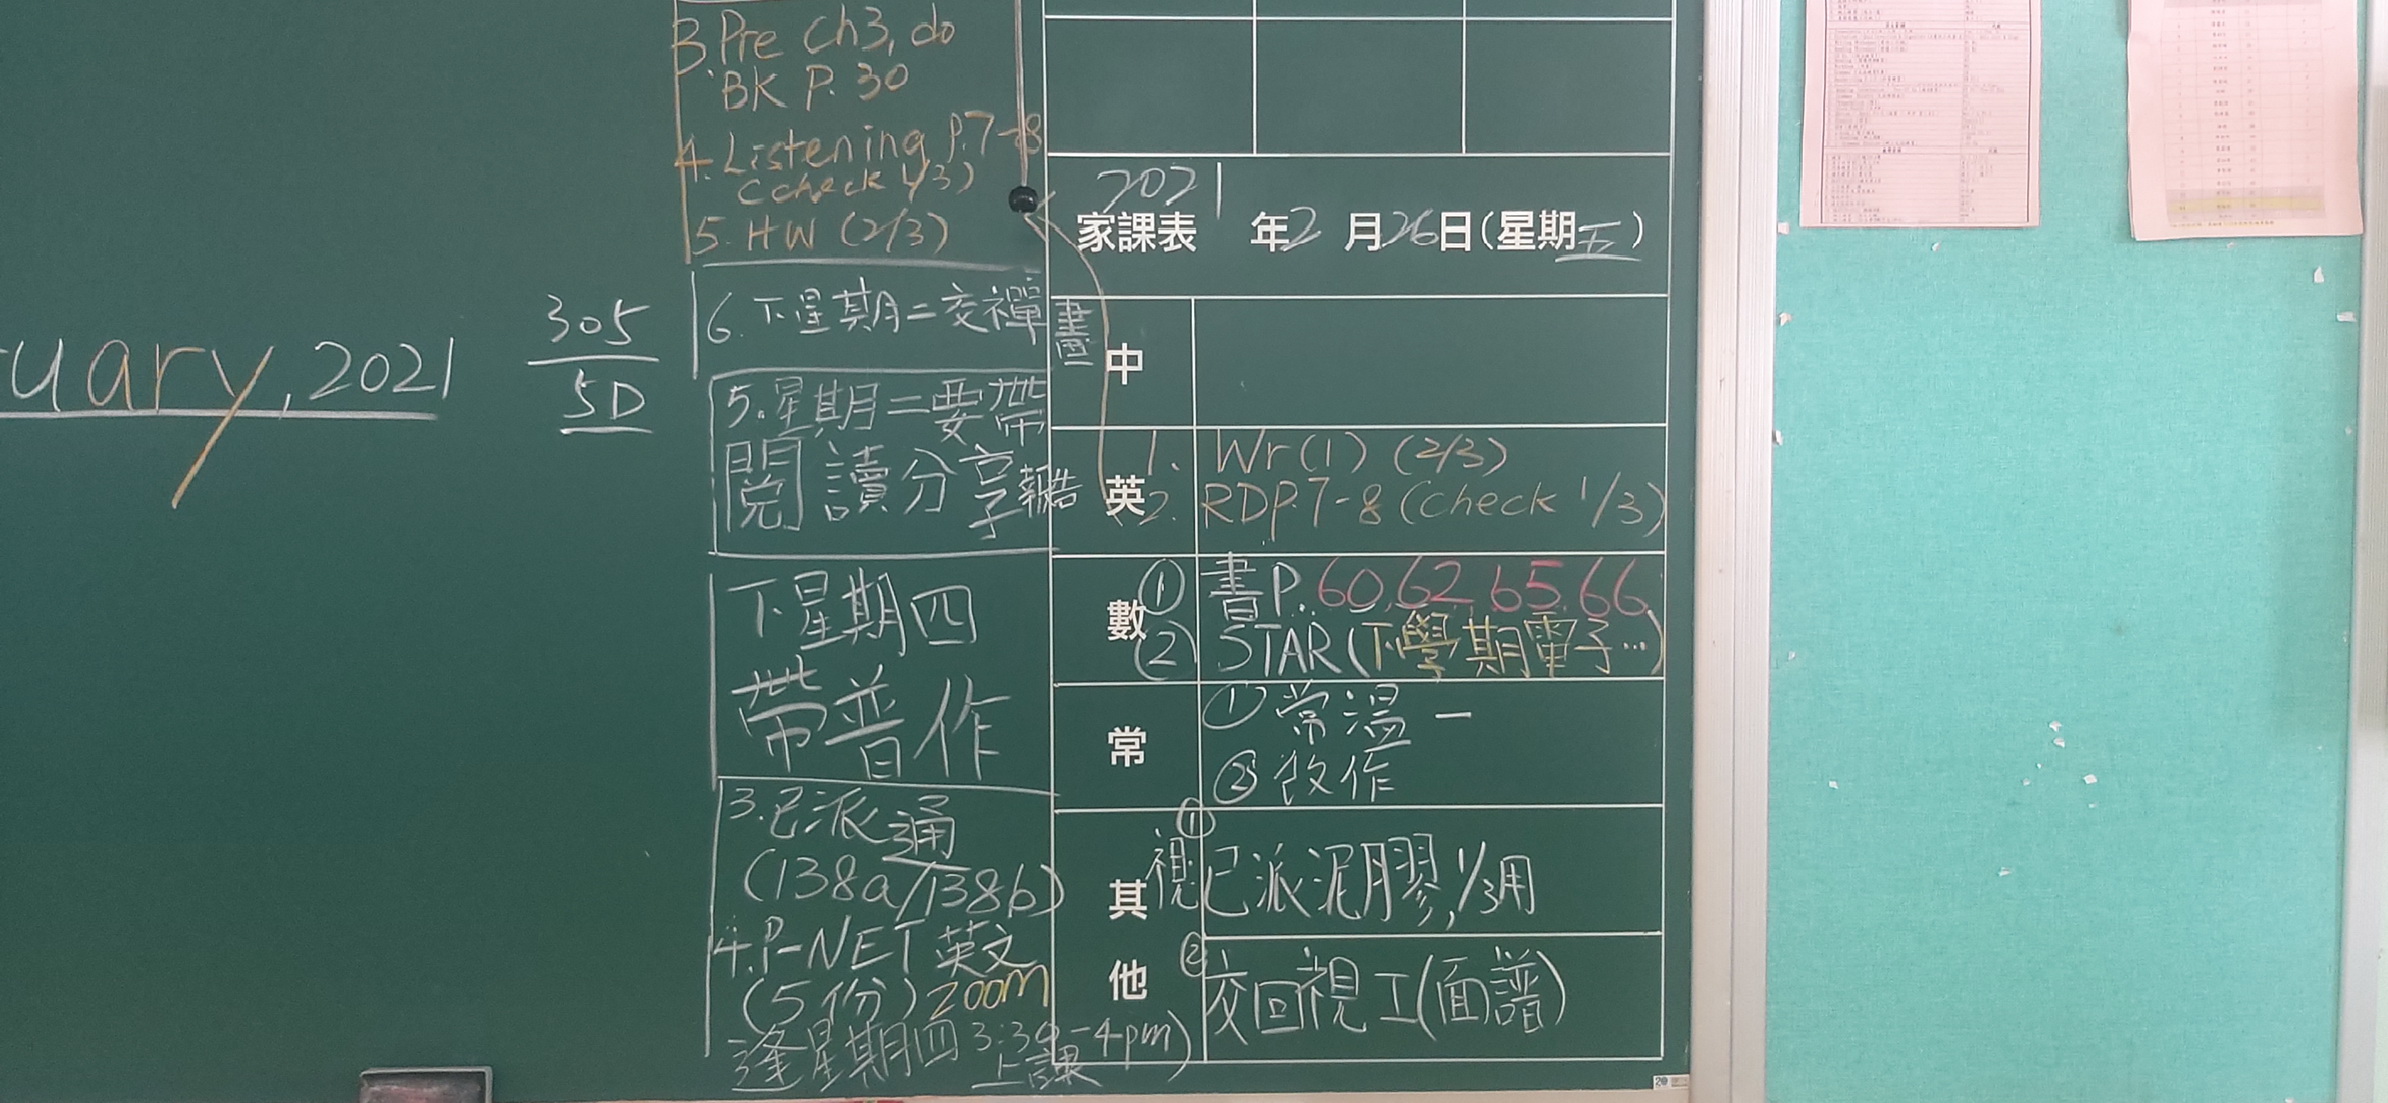 3. Pre Ch3, do
BK P. 30
4. Listening P.7-8
(check 1/3)
5. HW (2/3)
6. 下星期二交禪畫
5. 星期二要帶
閱讀分享報告
下星期四
帶普作
3. 已派通
(138a/138b)
4. P-NET 英文
(5份) zoom
逢星期四 3:30-4pm)
上課
uary, 2021
305
5D
2021
家課表 年2月26日(星期五)
中
英
1. Wr(1) (2/3)
2. RDP.7-8 (check 1/3)
數
① 書P. 60, 62, 65, 66
(2) STAR (下學期電子…)
常
① 常溫一
② 改作
其他
① 視 已派泥膠, 1/3用
② 交回視工(面譜)